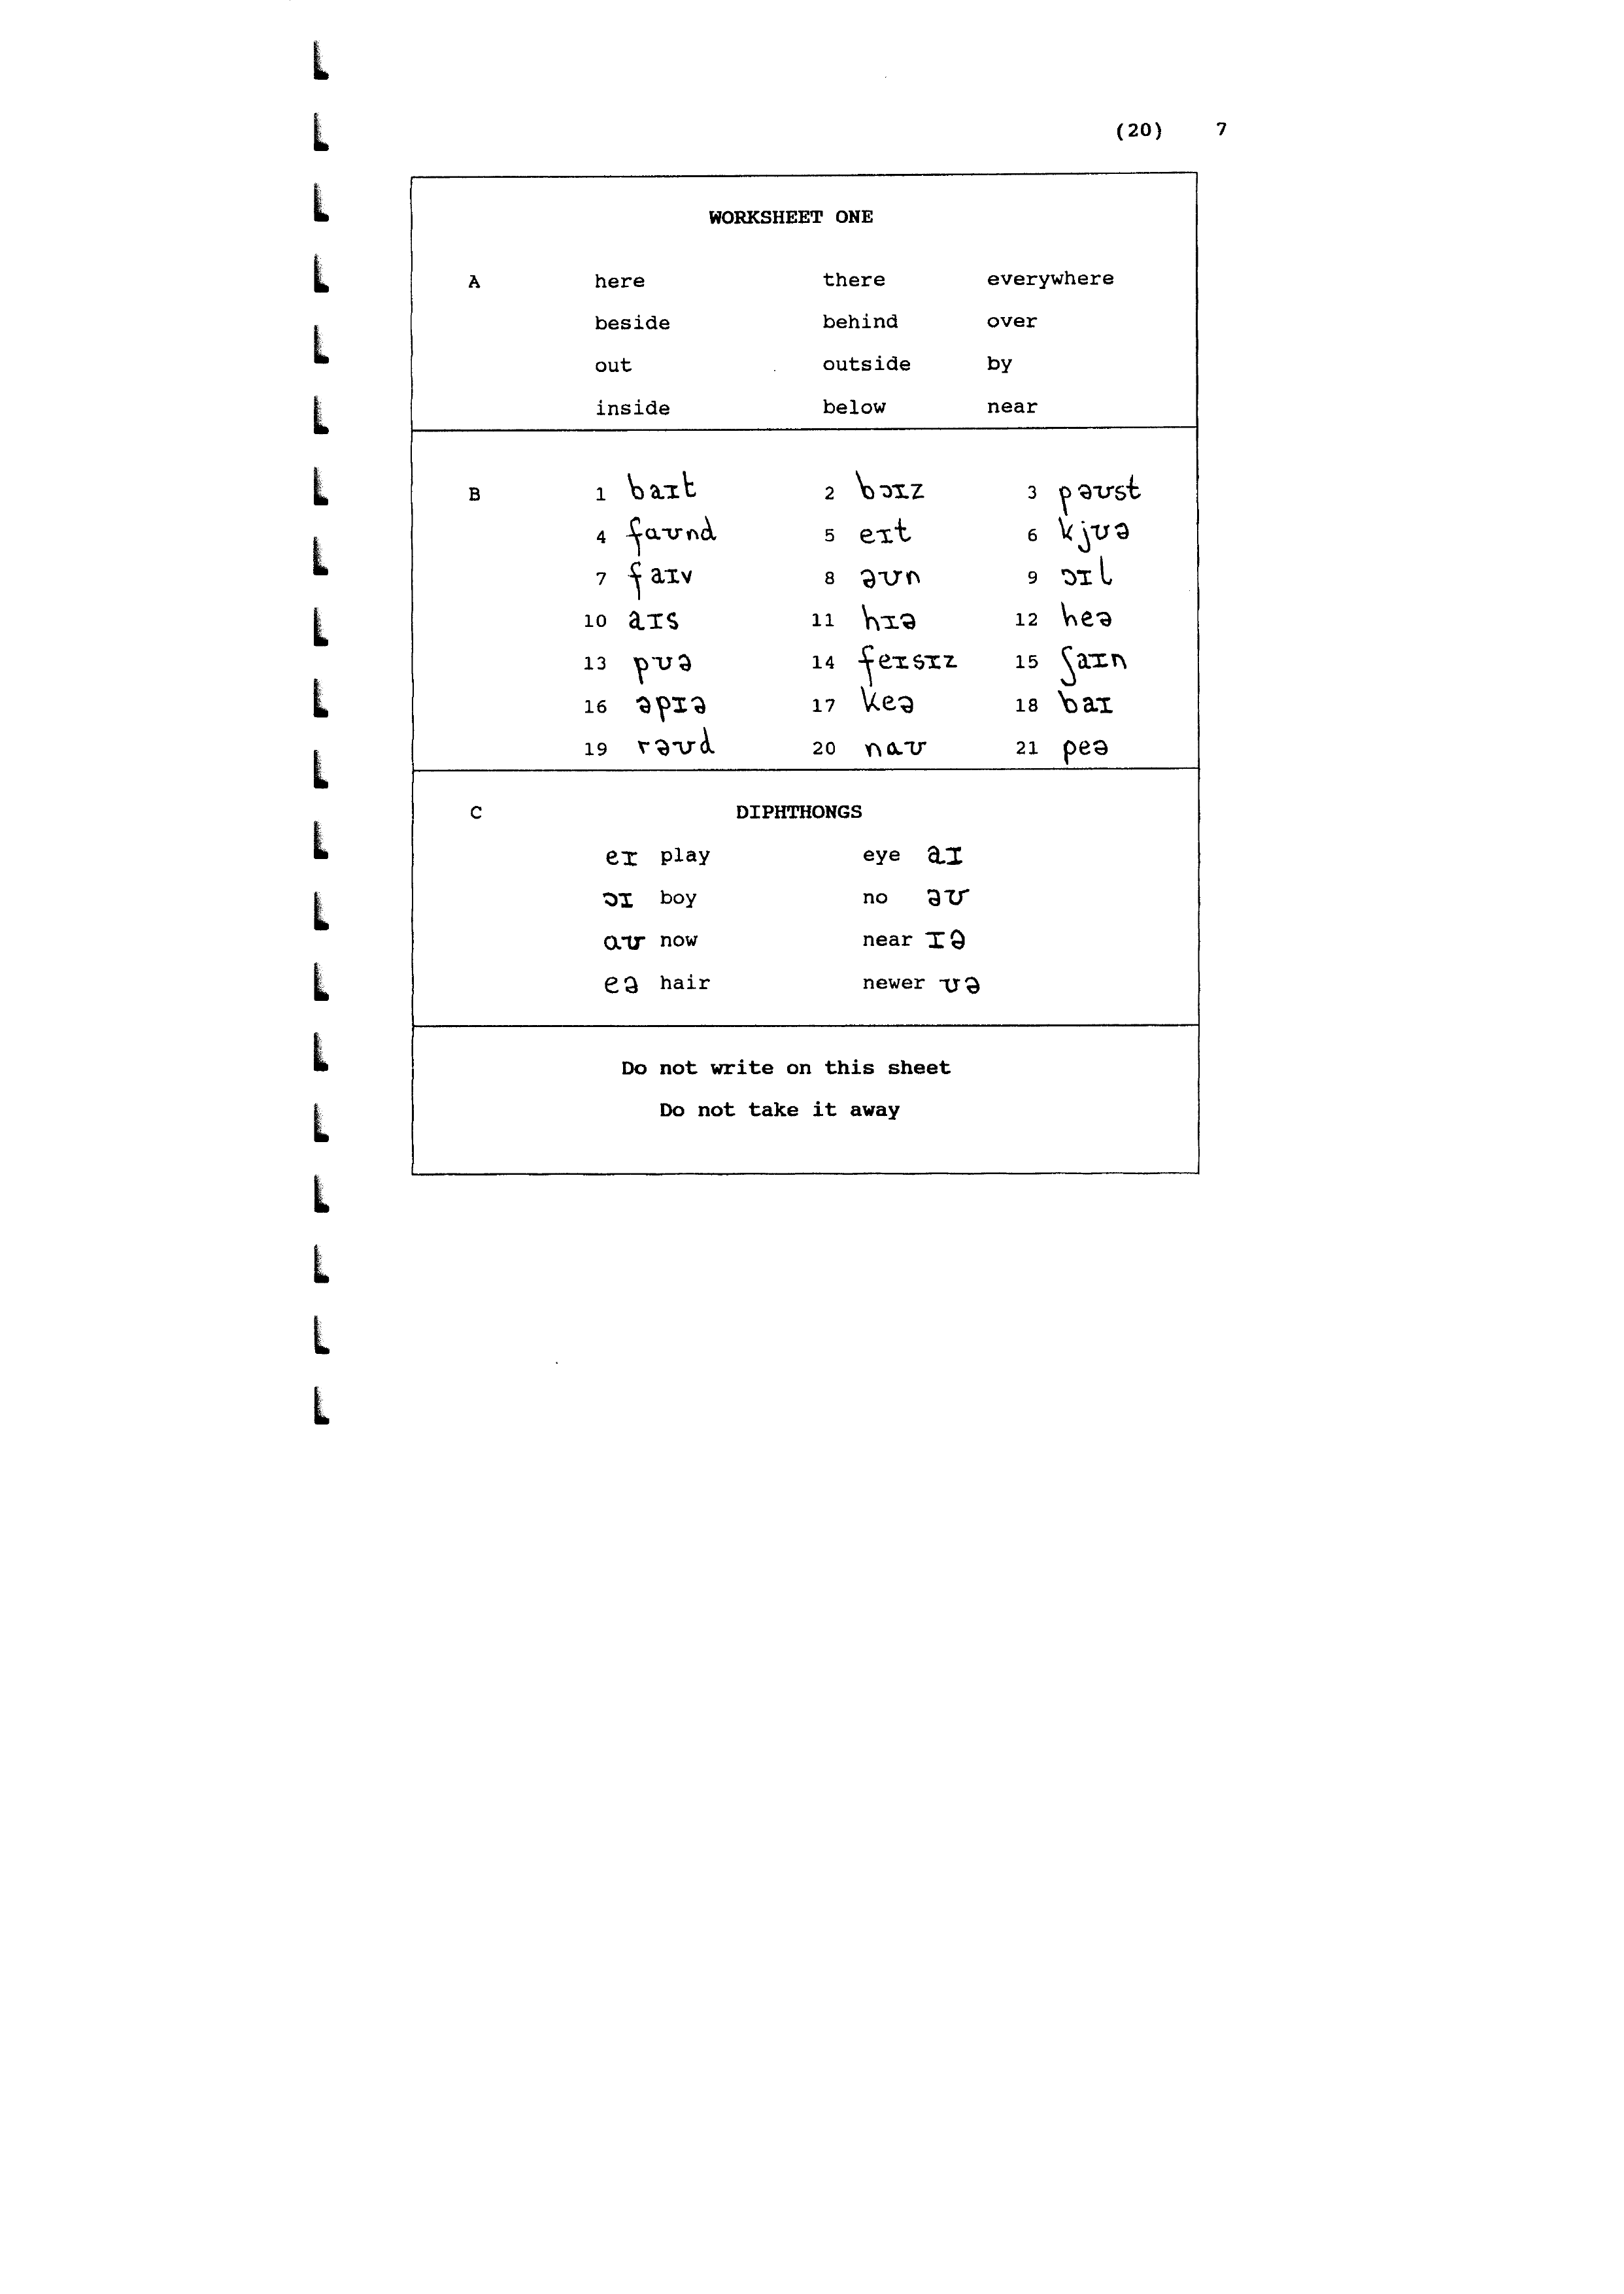 (20) 7
WORKSHEET ONE
A here there everywhere
beside behind over
out outside by
inside below near
B 1 baɪt 2 bɔɪz 3 pəʊst
4 faʊnd 5 eɪt 6 kjʊə
7 faɪv 8 əʊn 9 ɔɪl
10 aɪs 11 hɪə 12 heə
13 pʊə 14 feɪsɪz 15 ʃaɪn
16 əpɪə 17 keə 18 baɪ
19 rəʊd 20 naʊ 21 peə
C DIPHTHONGS
eɪ play eye aɪ
ɔɪ boy no əʊ
aʊ now near ɪə
eə hair newer ʊə
Do not write on this sheet
Do not take it away